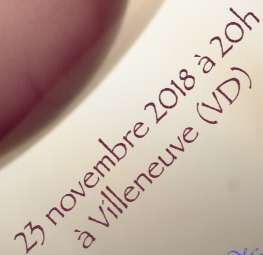 23 novembre 2018 à 20h
à Villeneuve (VD)